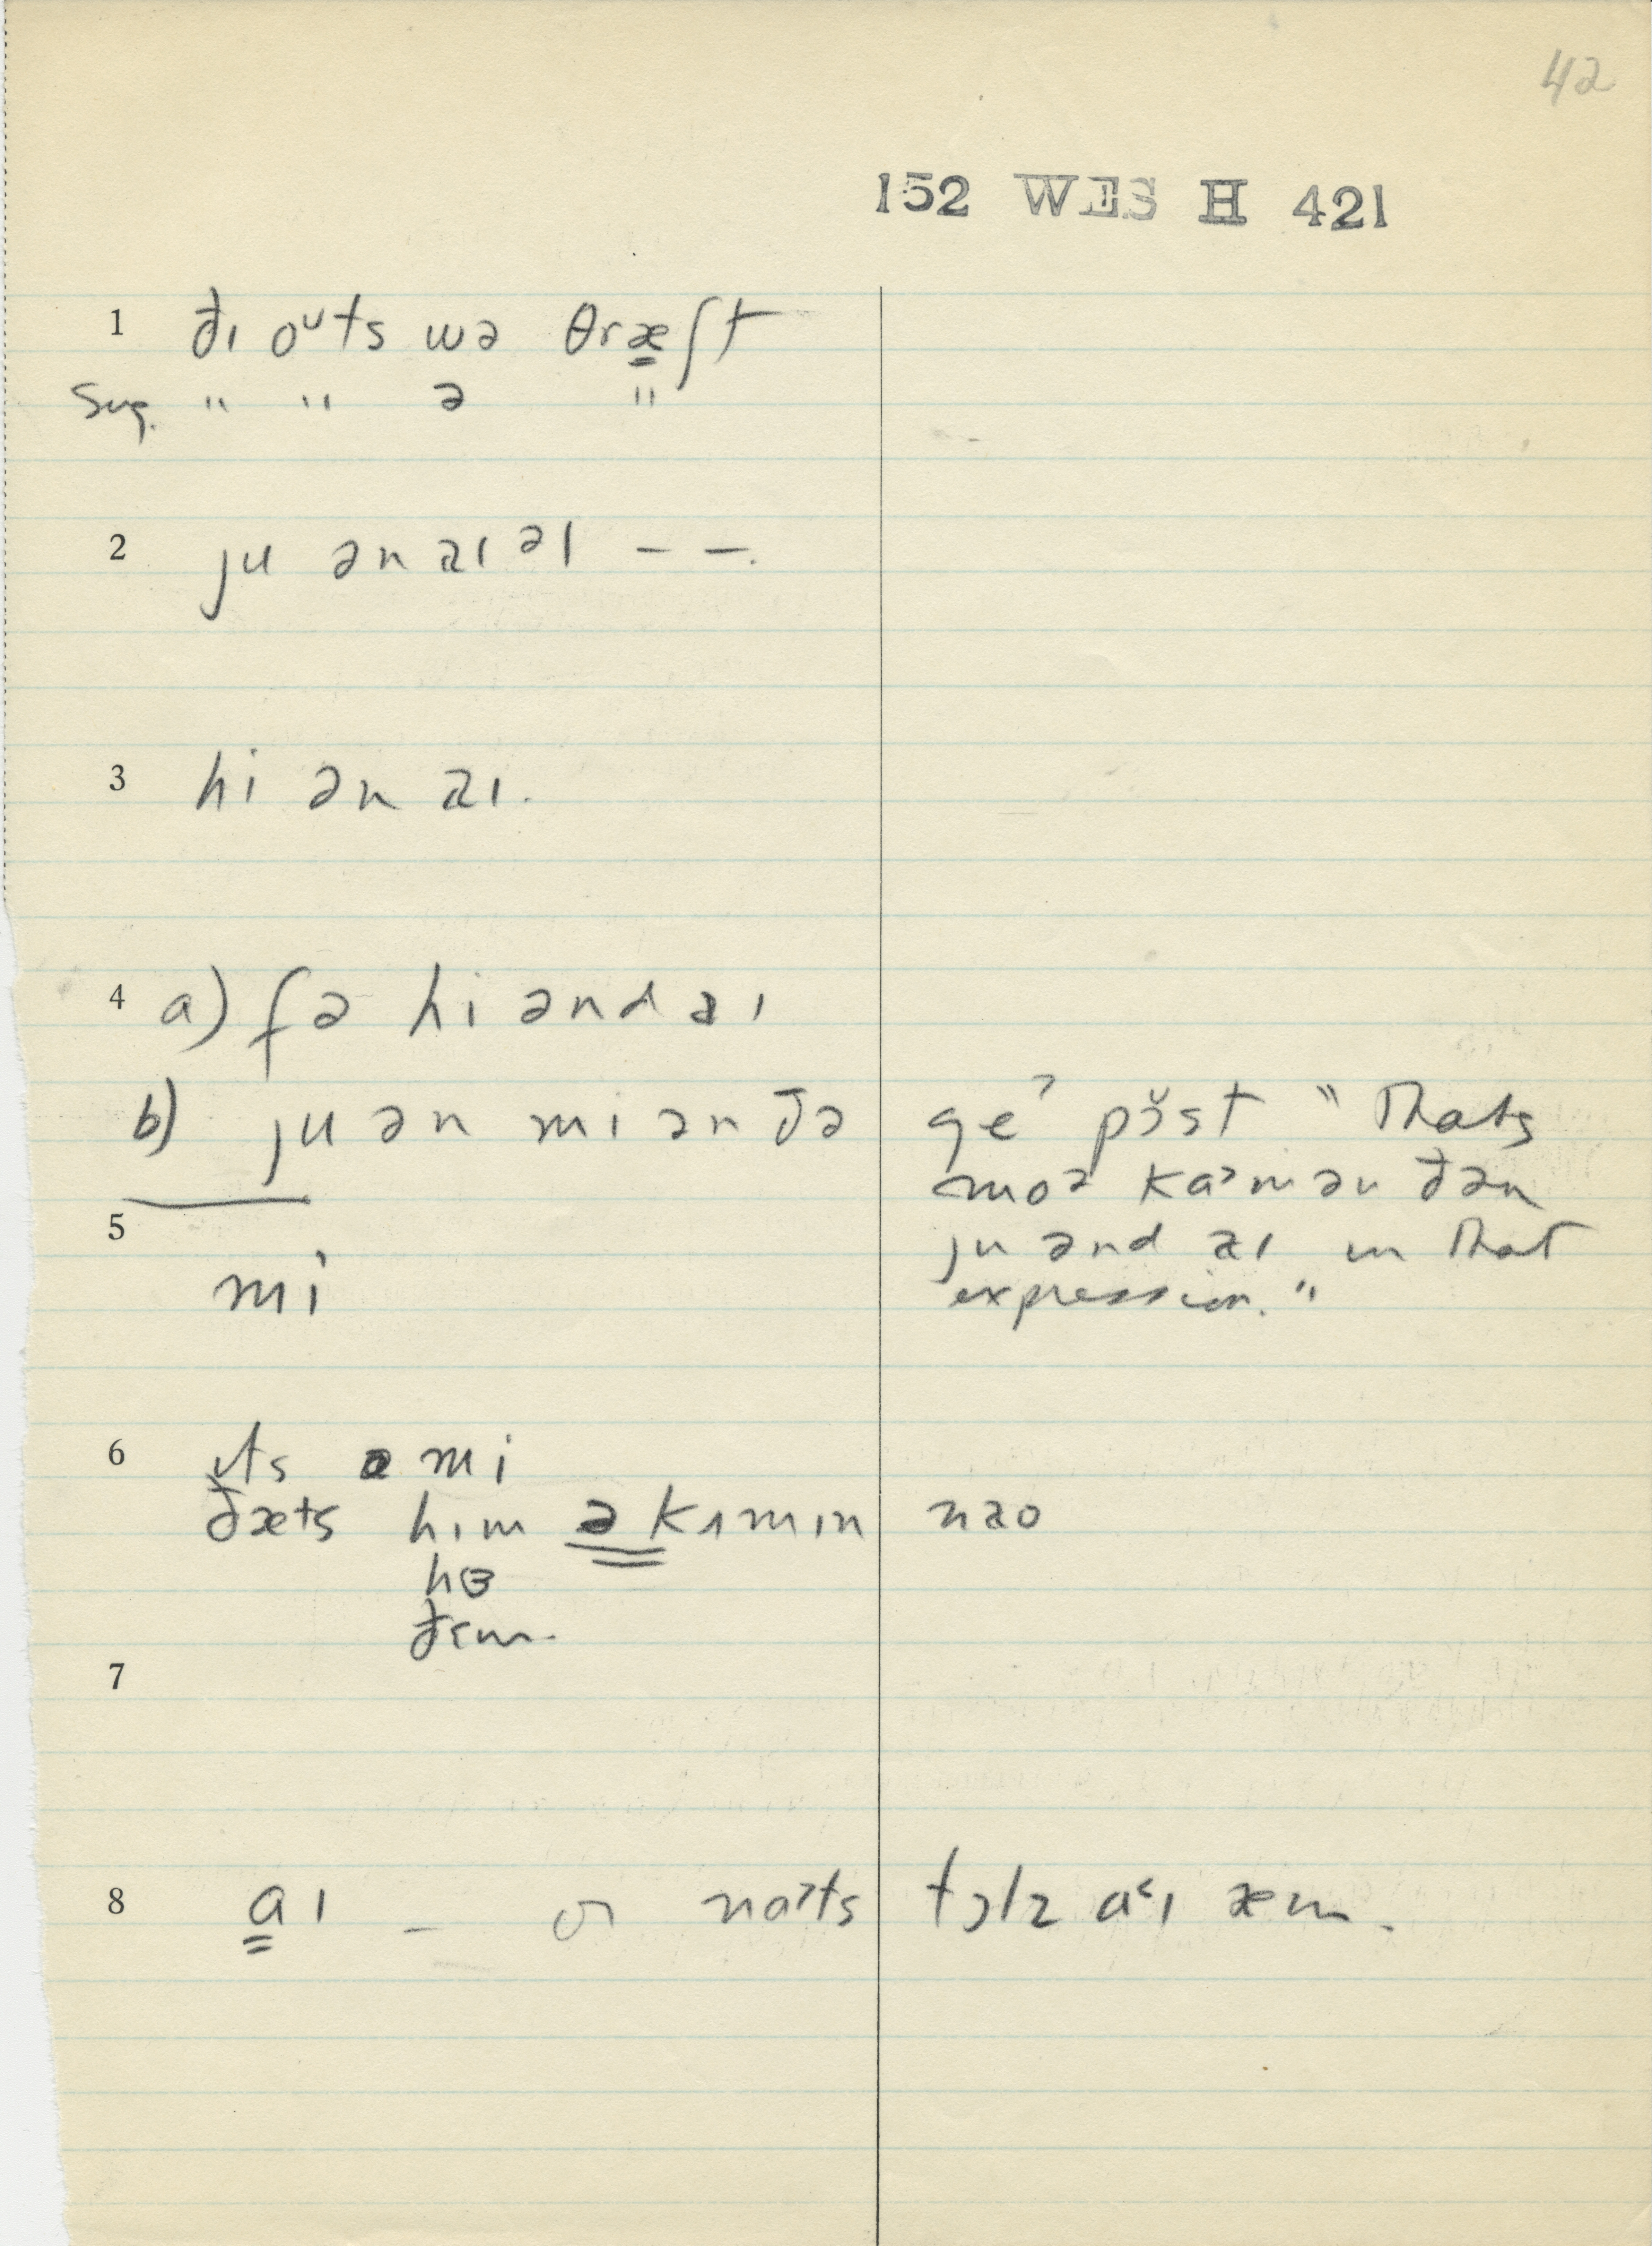 42
152 WES H 421
1 ðɪ oᴜts wə θræʃt
Sug. " " ə "
2 ju ən aɪ əl – –.
3 hi ən aɪ.
4 a) fə hi ənd aɪ
b) ju ən mi ən ðə geᵊ pɔ̆st " Thats
moə kaᵊmən ðən
ju ənd aɪ in that
expression. "
5 mi
6 ɪts ə mi
ðæts hɪm ə kʌmɪn nao
hɜ
ðɛm.
7
8 aɪ – naᵊts tɔlz aᵋɪ æm.